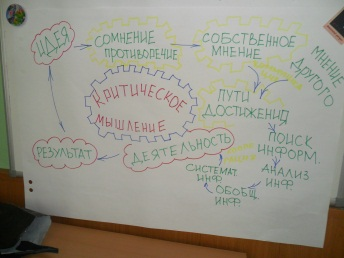 ИДЕЯ
СОМНЕНИЕ
ПРОТИВОРЕЧИЕ
СОБСТВЕННОЕ
МНЕНИЕ
МНЕНИЕ
ДРУГОГО
КРИТИЧЕСКОЕ
МЫШЛЕНИЕ
ПУТИ
ДОСТИЖЕНИЯ
ПОИСК
ИНФОРМ.
АНАЛИЗ
ИНФ.
ОБОБЩ.
ИНФ.
СИСТЕМАТ
ИНФ.
ДЕЯТЕЛЬНОСТЬ
РЕЗУЛЬТАТ